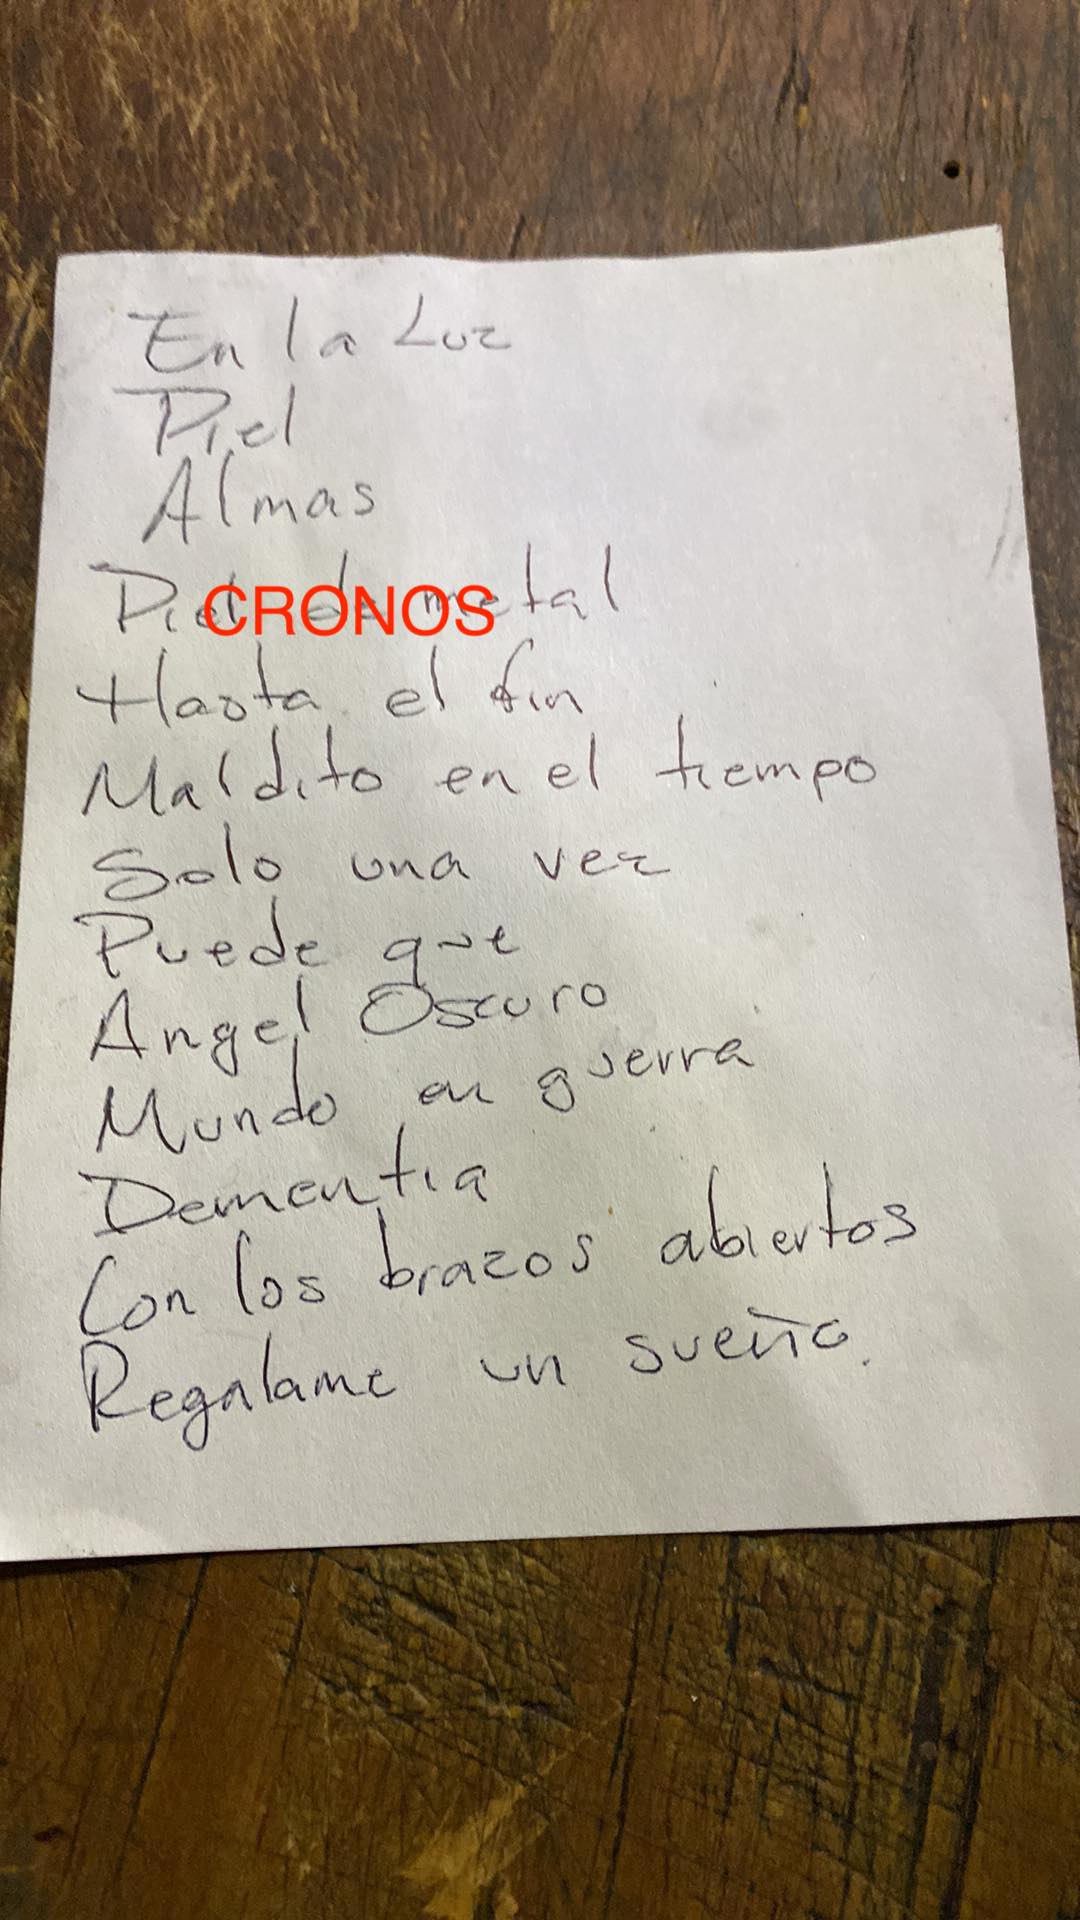 En la Luz
Piel
Almas
Piel de metal
CRONOS
Hasta el fin
Maldito en el tiempo
Solo una vez
Puede que
Angel Oscuro
Mundo en guerra
Dementia
Con los brazos abiertos
Regalame un sueño.